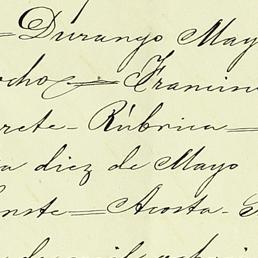 =Durango May
ocho= Francin
rete- Rúbrica=
ia diez de Mayo
onste= Acosta-